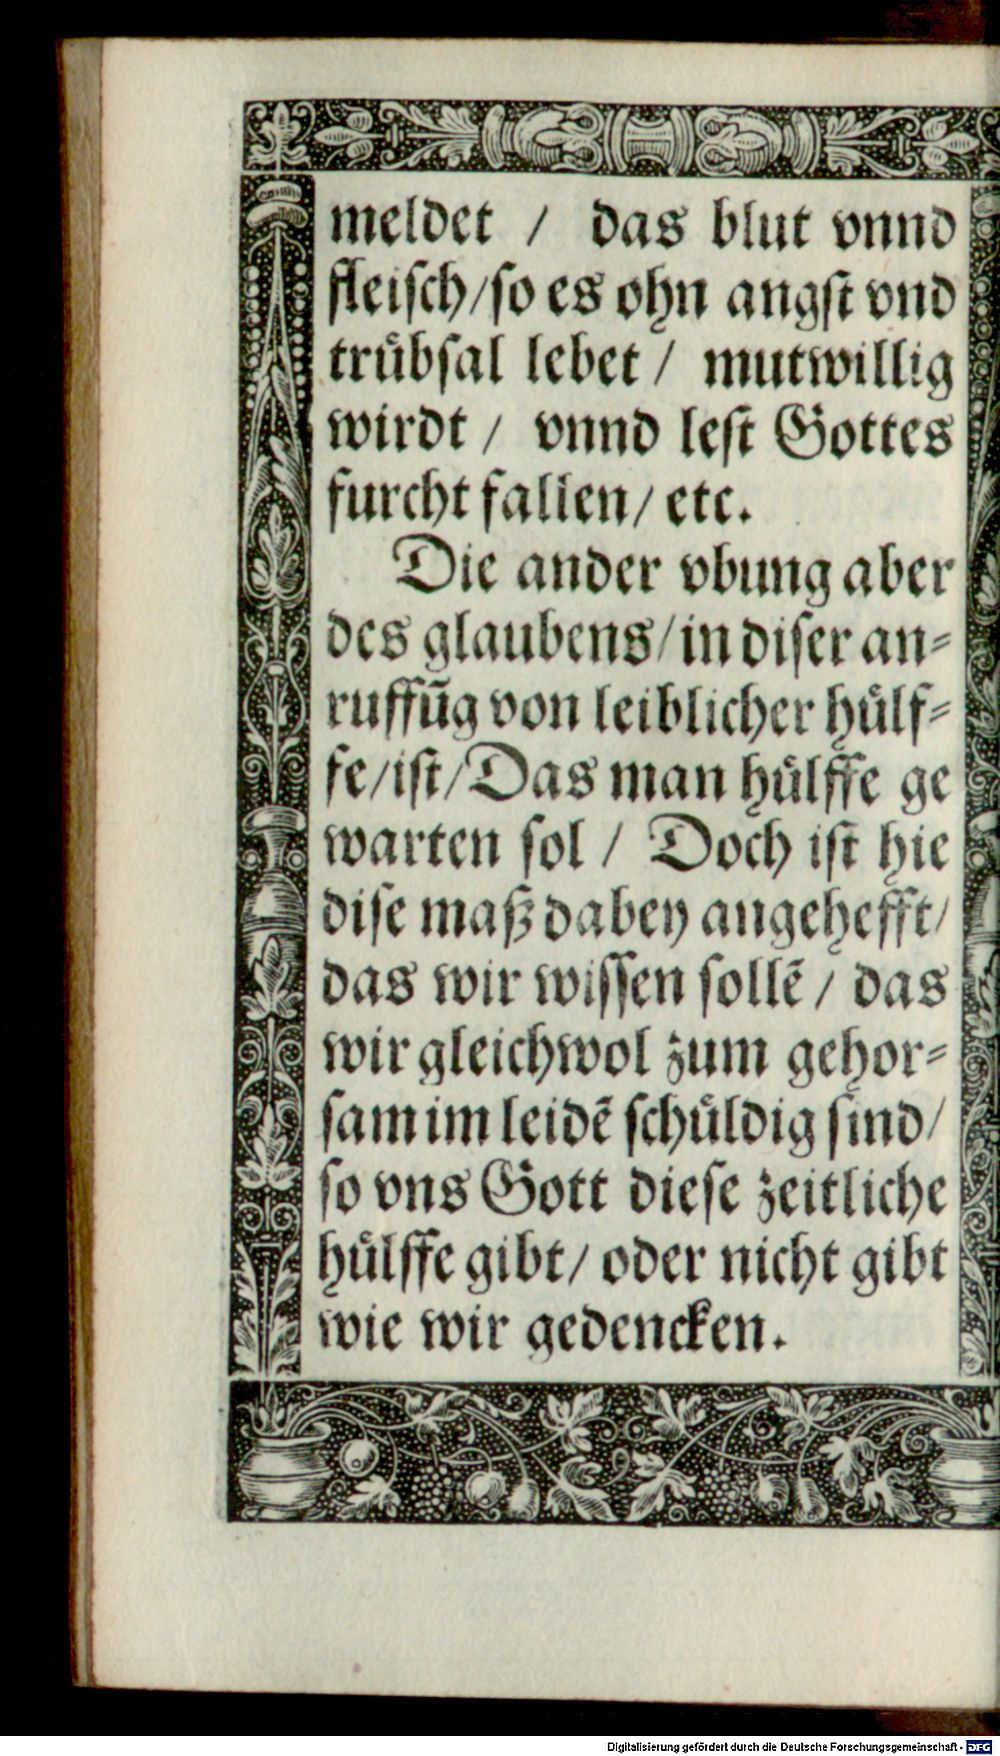 meldet / das blut vnnd
fleisch/so es ohn angst vnd
trübsal lebet / mutwillig
wirdt / vnnd lest Gottes
furcht fallen/ etc.
Die ander vbung aber
des glaubens/in diser an-
ruffũg von leiblicher hülf-
fe/ist/Das man hülffe ge
warten sol / Doch ist hie
dise maß dabey angehefft/
das wir wissen sollē / das
wir gleichwol zum gehor-
sam im leidē schüldig sind/
so vns Gott diese zeitliche
hülffe gibt/ oder nicht gibt
wie wir gedencken.
Digitalisierung gefördert durch die Deutsche Forschungsgemeinschaft - DFG